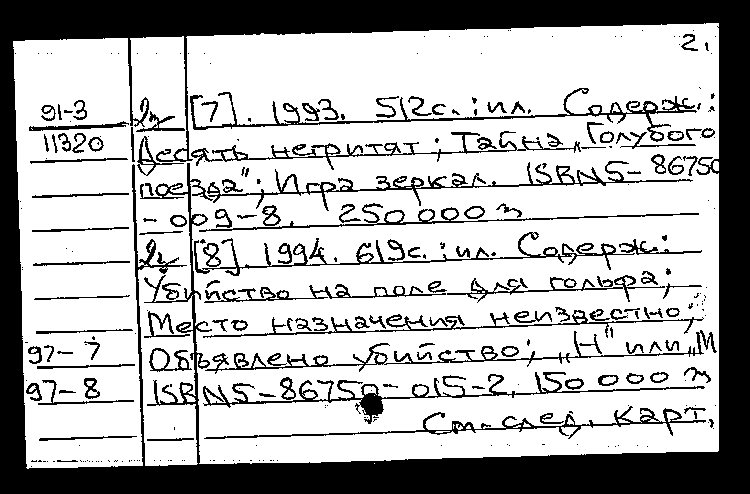 2.
91-3 2э [7]. 1993. 512с.: ил. Содерж.:
11320 Десять негритят; Тайна „Голубого
поезда"; Игра зеркал. ISBN5-86750
-009-8. 250000 э
2э [8]. 1994. 619с.: ил. Содерж.:
Убийство на поле для гольфа;
Место назначения неизвестно;
97-7 Объявлено убийство; „Н" или „М
97-8 ISBN5-86750-015-2. 150000 э
См. след. карт.